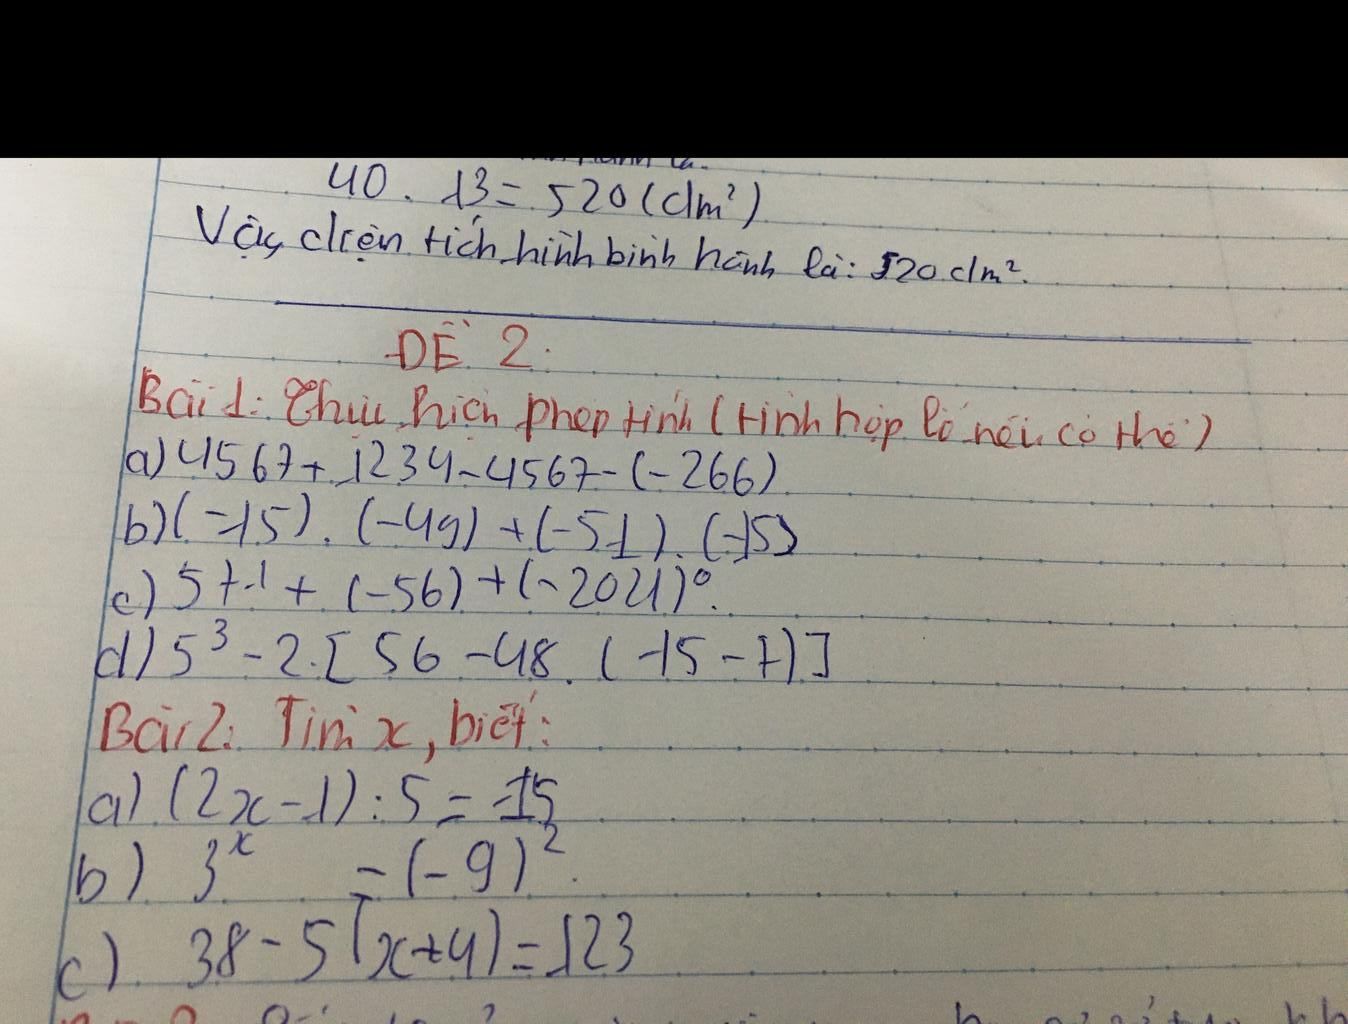 40 . 13 = 520 (dm²)
Vậy diện tích hình bình hành là: 520 dm².
ĐỀ 2:
Bài 1: Thực hiện phép tính (tính hợp lí nếu có thể)
a) 4567 + 1234 - 4567 - (-266)
b) (-15) . (-49) + (-51) . (-15)
c) 571 + (-56) + (-2021)⁰.
d) 5³ - 2 . [56 - 48 . (-15 - 7)]
Bài 2: Tìm x, biết:
a) (2x - 1) : 5 = -15
b) 3ˣ = (-9)².
c) 38 - 5(x + 4) = 123